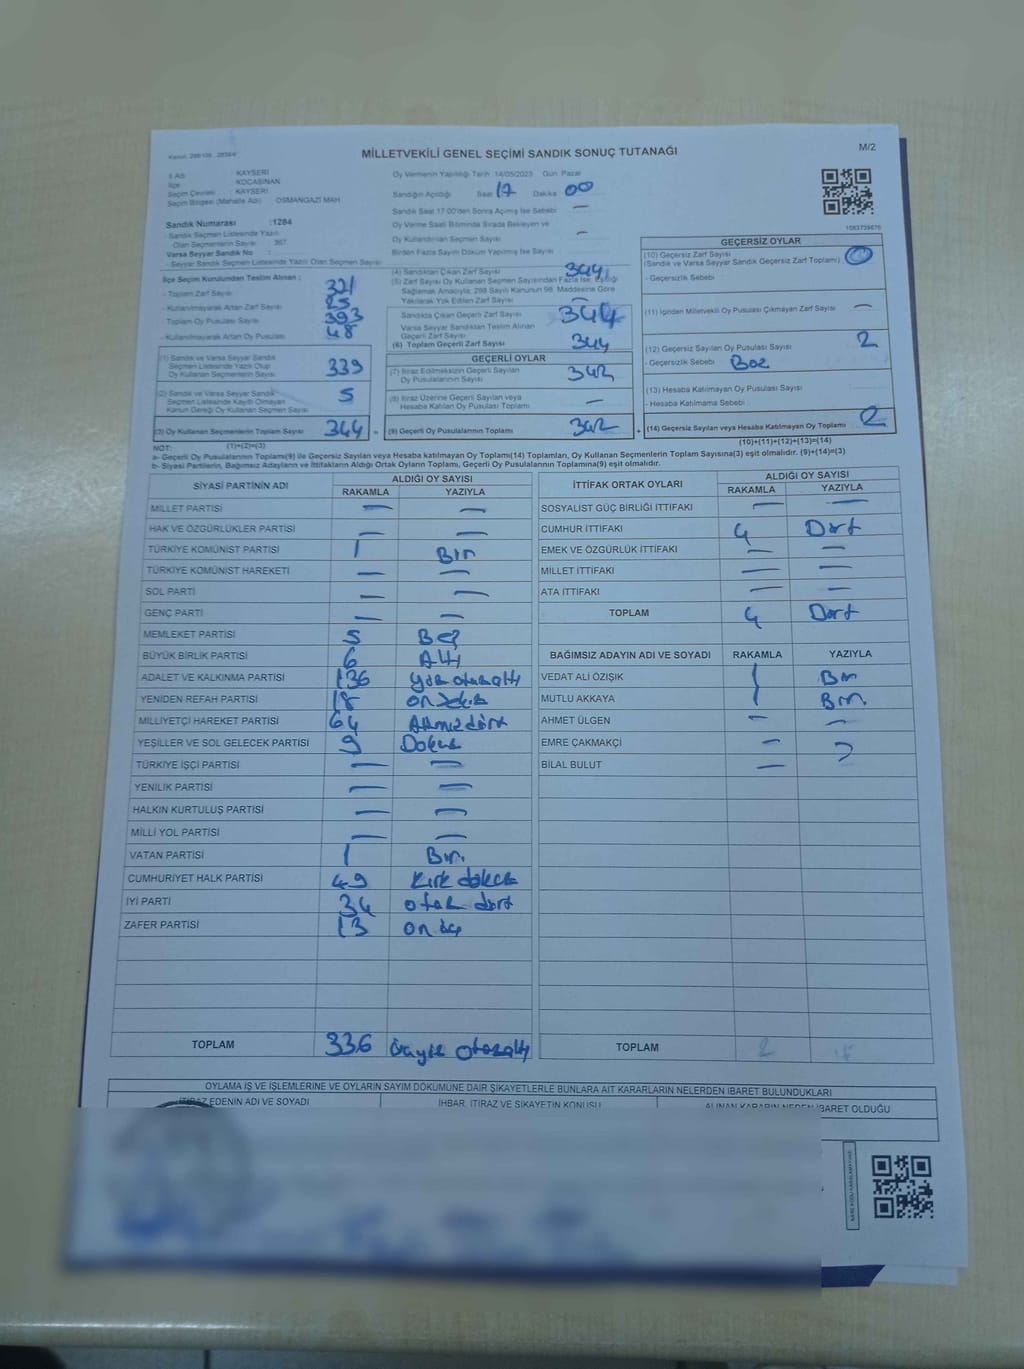 MİLLETVEKİLİ GENEL SEÇİMİ SANDIK SONUÇ TUTANAĞI
M/2
İl Adı : KAYSERİ
İlçe : KOCASİNAN
Seçim Çevresi : KAYSERİ
Seçim Bölgesi (Mahalle Adı) : OSMANGAZİ MAH
Oy Vermenin Yapıldığı Tarih :14/05/2023 Gün Pazar
Sandığın Açıldığı Saat 17 Dakika 00
Sandık Saat 17:00'den Sonra Açılmış İse Sebebi —
Oy Verme Saati Bitiminde Sırada Bekleyen ve
Oy Kullandırılan Seçmen Sayısı —
Birden Fazla Sayım Döküm Yapılmış İse Sayısı
Sandık Numarası :1284
- Sandık Seçmen Listesinde Yazılı
Olan Seçmenlerin Sayısı : 367
Varsa Seyyar Sandık No :
- Seyyar Sandık Seçmen Listesinde Yazılı Olan Seçmen Sayısı
İlçe Seçim Kurulundan Teslim Alınan :
- Toplam Zarf Sayısı
- Kullanılmayarak Artan Zarf Sayısı
- Toplam Oy Pusulası Sayısı 393
- Kullanılmayarak Artan Oy Pusulası 48
(1) Sandık ve Varsa Seyyar Sandık
Seçmen Listesinde Yazılı Olup
Oy Kullanan Seçmenlerin Sayısı 339
(2) Sandık ve Varsa Seyyar Sandık
Seçmen Listesinde Kayıtlı Olmayan
Kanun Gereği Oy Kullanan Seçmen Sayısı 5
(3) Oy Kullanan Seçmenlerin Toplam Sayısı 344 =
(1)+(2)=(3)
(4) Sandıktan Çıkan Zarf Sayısı 344
(5) Zarf Sayısı Oy Kullanan Seçmen Sayısından Fazla İse, Eşitliği
Sağlamak Amacıyla, 298 Sayılı Kanunun 98. Maddesine Göre
Yakılarak Yok Edilen Zarf Sayısı —
Sandıkta Çıkan Geçerli Zarf Sayısı 344
Varsa Seyyar Sandıktan Teslim Alınan
Geçerli Zarf Sayısı
(6) Toplam Geçerli Zarf Sayısı 344
GEÇERLİ OYLAR
(7) İtiraz Edilmeksizin Geçerli Sayılan
Oy Pusulalarının Sayısı 342
(8) İtiraz Üzerine Geçerli Sayılan veya
Hesaba Katılan Oy Pusulası Toplamı —
(9) Geçerli Oy Pusulalarının Toplamı 342 +
1083739476
GEÇERSİZ OYLAR
(10) Geçersiz Zarf Sayısı
(Sandık ve Varsa Seyyar Sandık Geçersiz Zarf Toplamı) 0
- Geçersizlik Sebebi :
(11) İçinden Milletvekili Oy Pusulası Çıkmayan Zarf Sayısı —
(12) Geçersiz Sayılan Oy Pusulası Sayısı 2
- Geçersizlik Sebebi :
(13) Hesaba Katılmayan Oy Pusulası Sayısı
- Hesaba Katılmama Sebebi :
(14) Geçersiz Sayılan veya Hesaba Katılmayan Oy Toplamı 2
(10)+(11)+(12)+(13)=(14)
NOT:
a- Geçerli Oy Pusulaları Toplamı(9) ile Geçersiz Sayılan veya Hesaba katılmayan Oy Toplamı(14) Toplamları, Oy Kullanan Seçmenlerin Toplam Sayısına(3) eşit olmalıdır. (9)+(14)=(3)
b- Siyasi Partilerin, Bağımsız Adayların ve İttifakların Aldığı Ortak Oyların Toplamı, Geçerli Oy Pusulalarının Toplamına(9) eşit olmalıdır.
SİYASİ PARTİNİN ADI
ALDIĞI OY SAYISI
RAKAMLA YAZIYLA
MİLLET PARTİSİ — —
HAK VE ÖZGÜRLÜKLER PARTİSİ — —
TÜRKİYE KOMÜNİST PARTİSİ 1 Bir
TÜRKİYE KOMÜNİST HAREKETİ — —
SOL PARTİ — —
GENÇ PARTİ — —
MEMLEKET PARTİSİ 5 Beş
BÜYÜK BİRLİK PARTİSİ 6 Altı
ADALET VE KALKINMA PARTİSİ 136 Yüz otuzaltı
YENİDEN REFAH PARTİSİ 18 onsekiz
MİLLİYETÇİ HAREKET PARTİSİ 64 Altmışdört
YEŞİLLER VE SOL GELECEK PARTİSİ 9 Dokuz
TÜRKİYE İŞÇİ PARTİSİ — —
YENİLİK PARTİSİ — —
HALKIN KURTULUŞ PARTİSİ — —
MİLLİ YOL PARTİSİ — —
VATAN PARTİSİ 1 Bir
CUMHURİYET HALK PARTİSİ 49 Kırk dokuz
İYİ PARTİ 34 otuz dört
ZAFER PARTİSİ 13 on üç
TOPLAM 336 üçyüz otuzaltı
İTTİFAK ORTAK OYLARI
ALDIĞI OY SAYISI
RAKAMLA YAZIYLA
SOSYALİST GÜÇ BİRLİĞİ İTTİFAKI — —
CUMHUR İTTİFAKI 4 Dört
EMEK VE ÖZGÜRLÜK İTTİFAKI — —
MİLLET İTTİFAKI — —
ATA İTTİFAKI — —
TOPLAM 4 Dört
BAĞIMSIZ ADAYIN ADI VE SOYADI RAKAMLA YAZIYLA
VEDAT ALİ ÖZIŞIK 1 Bir
MUTLU AKKAYA 1 Bir
AHMET ÜLGEN — —
EMRE ÇAKMAKÇİ —
BİLAL BULUT —
TOPLAM 2
OYLAMA İŞ VE İŞLEMLERİNE VE OYLARIN SAYIM DÖKÜMÜNE DAİR ŞİKAYETLERLE BUNLARA AİT KARARLARIN NELERDEN İBARET BULUNDUKLARI
İTİRAZ EDENİN ADI VE SOYADI İHBAR, İTİRAZ VE ŞİKAYETİN KONUSU ALINAN KARARIN NEDEN İBARET OLDUĞU